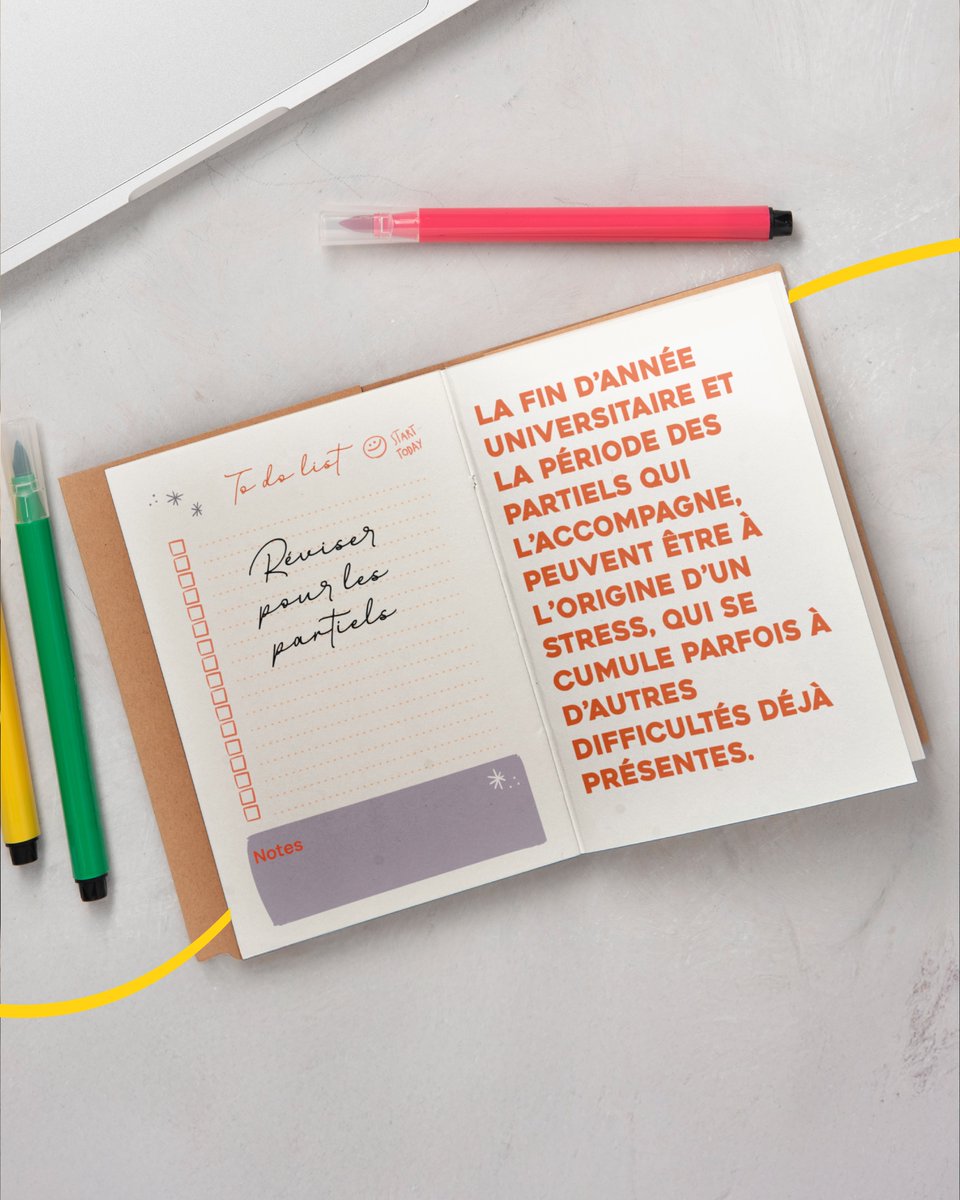 To do list
START
TODAY
Réviser
pour les
partiels
Notes
LA FIN D'ANNÉE
UNIVERSITAIRE ET
LA PÉRIODE DES
PARTIELS QUI
L'ACCOMPAGNE,
PEUVENT ÊTRE À
L'ORIGINE D'UN
STRESS, QUI SE
CUMULE PARFOIS À
D'AUTRES
DIFFICULTÉS DÉJÀ
PRÉSENTES.